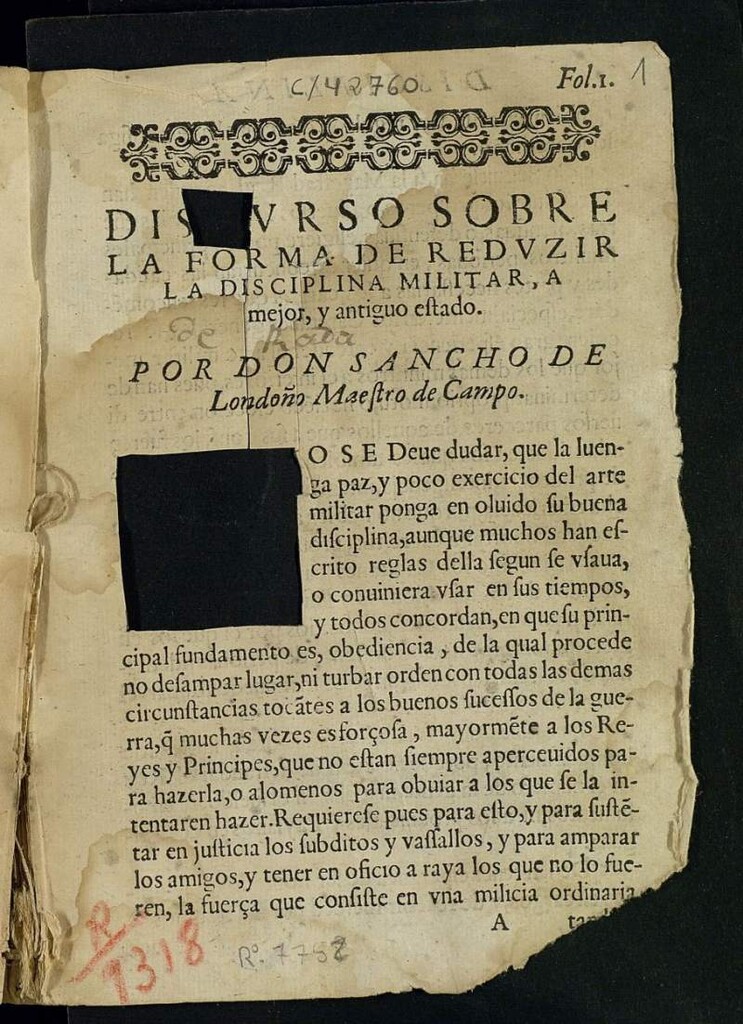 C/42760
Fol.1. 1
DIS VRSO SOBRE
LA FORMA DE REDVZIR
LA DISCIPLINA MILITAR, A
mejor, y antiguo eſtado.
de Rada
POR DON SANCHO DE
Londoño Maeſtro de Campo.
O SE Deue dudar, que la luen-
ga paz, y poco exercicio del arte
militar ponga en oluido ſu buena
diſciplina, aunque muchos han eſ-
crito reglas della ſegun ſe vſaua,
o conuiniera vſar en ſus tiempos,
y todos concordan, en que ſu prin-
cipal fundamento es, obediencia, de la qual procede
no deſampar lugar, ni turbar orden con todas las demas
circunſtancias tocãtes a los buenos ſuceſſos de la gue-
rra, q̃ muchas vezes es forçoſa, mayormẽte a los Re-
yes y Principes, que no eſtan ſiempre aperceuidos pa-
ra hazerla, o alomenos para obuiar a los que ſe la in-
tentaren hazer. Requiereſe pues para eſto, y para ſuſtẽ-
tar en juſticia los ſubditos y vaſſallos, y para amparar
los amigos, y tener en oficio a raya los que no lo fue-
ren, la fuerça que conſiſte en vna milicia ordinaria
A
R
1318
Rº. 7752